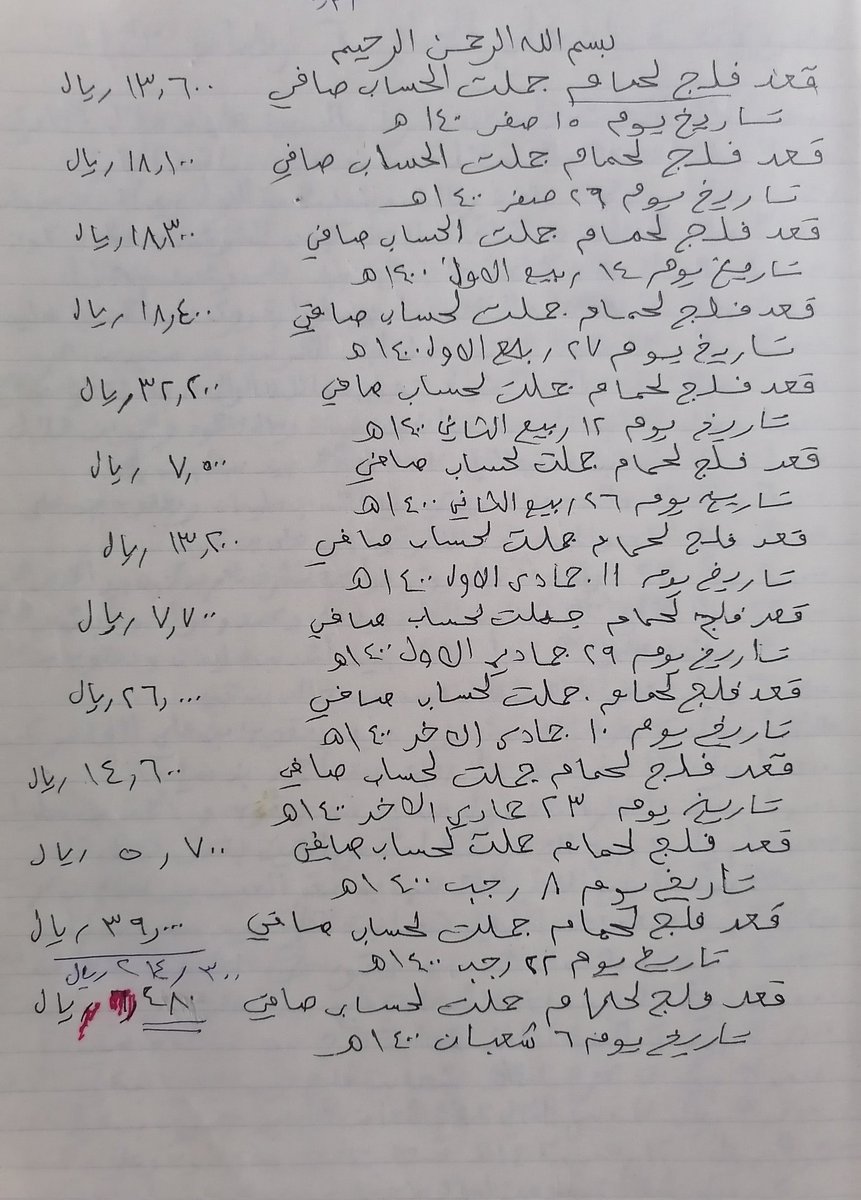 بسم الله الرحمن الرحيم
قعد فلج لحمام جملت الحساب صافي ١٣٫٦٠٠ ريال
تاريخ يوم ١٥ صفر ١٤٠٠هـ
قعد فلج لحمام جملت الحساب صافي ١٨٫١٠٠ ريال
تاريخ يوم ٢٩ صفر ١٤٠٠هـ
قعد فلج لحمام جملت الحساب صافي ١٨٫٣٠٠ ريال
تاريخ يوم ١٤ ربيع الاول ١٤٠٠هـ
قعد فلج لحمام جملت لحساب صافي ١٨٫٤٠٠ ريال
تاريخ يوم ٢٧ ربيع الاول ١٤٠٠هـ
قعد فلج لحمام جملت لحساب صافي ٣٢٫٢٠٠ ريال
تاريخ يوم ١٢ ربيع الثاني ١٤٠٠هـ
قعد فلج لحمام جملت لحساب صافي ٧٫٥٠٠ ريال
تاريخ يوم ٢٦ ربيع الثاني ١٤٠٠هـ
قعد فلج لحمام جملت لحساب صافي ١٣٫٢٠٠ ريال
تاريخ يوم ١١ جمادى الاول ١٤٠٠هـ
قعد فلج لحمام جملت لحساب صافي ٧٫٧٠٠ ريال
تاريخ يوم ٢٩ جمادي الاول ١٤٠٠هـ
قعد فلج لحمام جملت لحساب صافي ٢٦٫٠٠٠ ريال
تاريخ يوم ١٠ جمادى الاخر ١٤٠٠هـ
قعد فلج لحمام جملت لحساب صافي ١٤٫٦٠٠ ريال
تاريخ يوم ٢٣ جمادي الاخر ١٤٠٠هـ
قعد فلج لحمام جملت لحساب صافي ٥٫٧٠٠ ريال
تاريخ يوم ٨ رجب ١٤٠٠هـ
قعد فلج لحمام جملت لحساب صافي ٣٩٫٠٠٠ ريال
تاريخ يوم ٢٢ رجب ١٤٠٠هـ
٢١٤٫٣٠٠ ريال
قعد فلج لحمام جملت لحساب صافي ٤٨٠ ريال
تاريخ يوم ٦ شعبان ١٤٠٠هـ